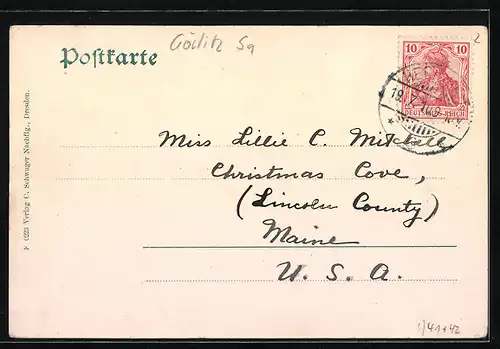 Görlitz Sa
2
Poſtkarte
10 10
DEUTSCHES REICH
Miss Lillie C. Mitchell
Christmas Cove,
(Lincoln County)
Maine
U. S. A.
F 6223 Verlag C. Schwager Nachflg., Dresden.